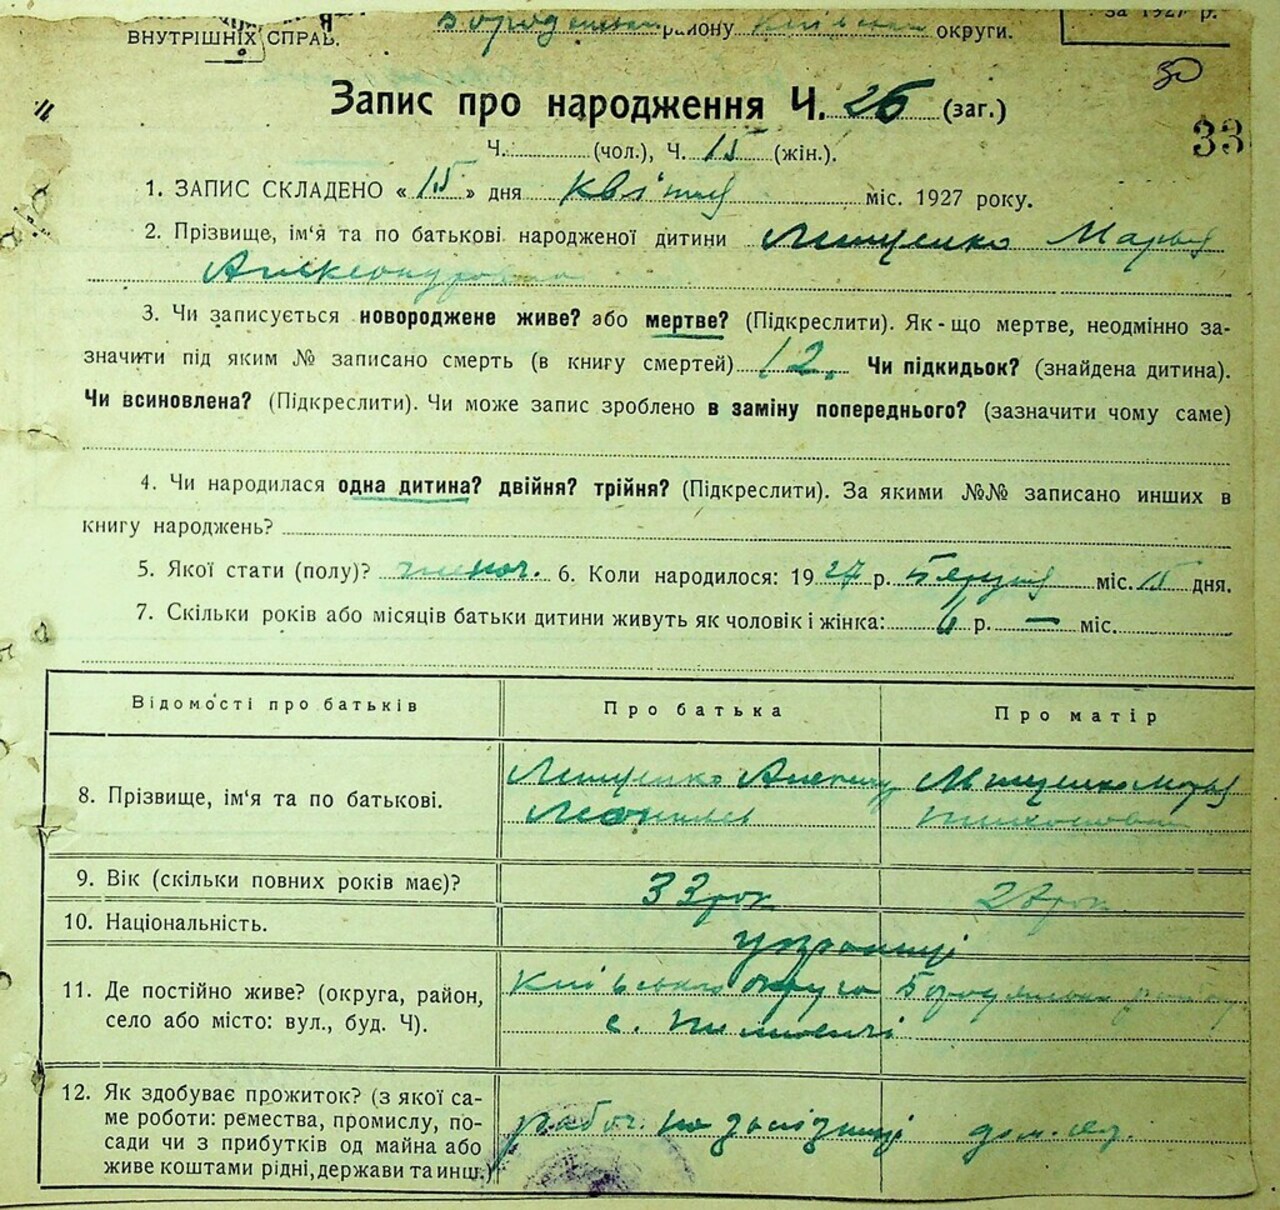 за 1927 р.
району округи.
ВНУТРІШНІХ СПРАВ.
30
Запис про народження Ч. 26 (заг.)
33
Ч. (чол.), Ч. 15 (жін.).
1. ЗАПИС СКЛАДЕНО « 15 » дня квітня міс. 1927 року.
2. Прізвище, ім'я та по батькові народженої дитини Марья
Александровна
3. Чи записується новороджене живе? або мертве? (Підкреслити). Як-що мертве, неодмінно за-
значити під яким № записано смерть (в книгу смертей) 12. Чи підкидьок? (знайдена дитина).
Чи всиновлена? (Підкреслити). Чи може запис зроблено в заміну попереднього? (зазначити чому саме)
4. Чи народилася одна дитина? двійня? трійня? (Підкреслити). За якими №№ записано инших в
книгу народжень?
5. Якої стати (полу)? жіноч. 6. Коли народилося: 1927 р. березня міс. 15 дня.
7. Скільки років або місяців батьки дитини живуть як чоловік і жінка: 6 р. — міс.
Відомості про батьків Про батька Про матір
8. Прізвище, ім'я та по батькові.
9. Вік (скільки повних років має)? 33 рок 27 рок
10. Національність. українці
11. Де постійно живе? (округа, район, Київська округа Бородянський район
село або місто: вул., буд. Ч). с.
12. Як здобуває прожиток? (з якої са-
ме роботи: ремества, промислу, по- робіт. на дом.
сади чи з прибутків од майна або
живе коштами рідні, держави та инш.)